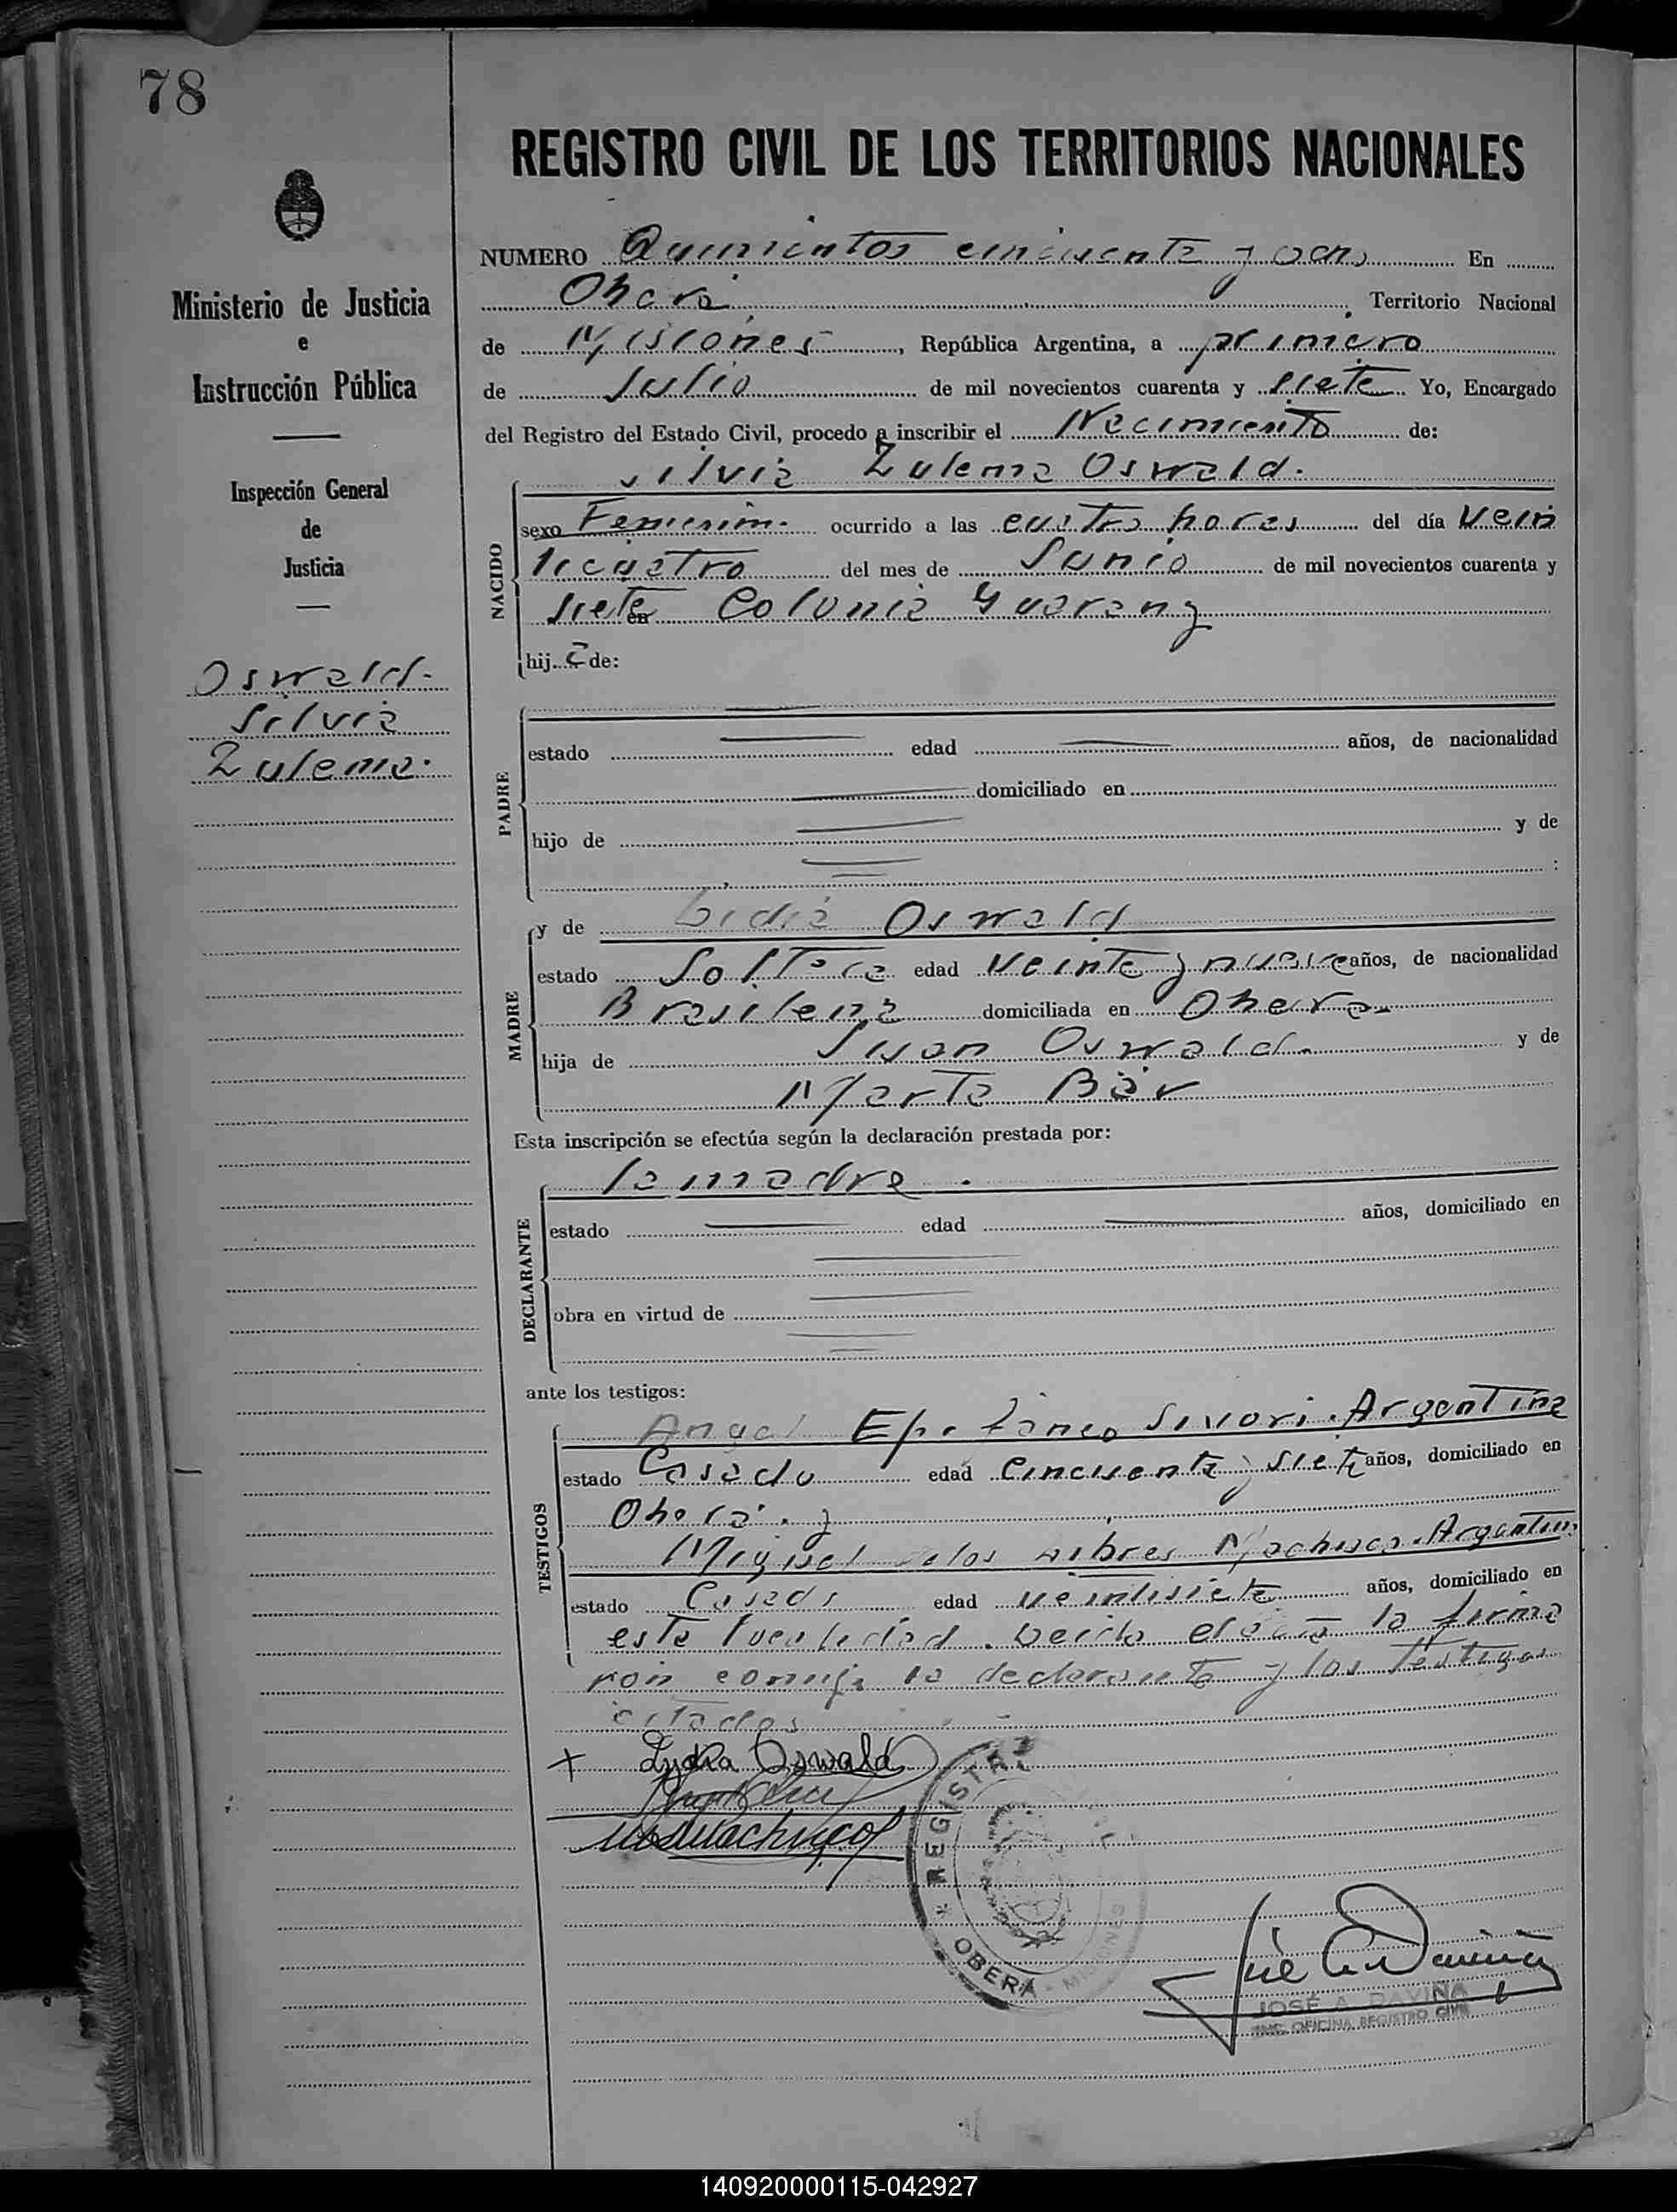 78
REGISTRO CIVIL DE LOS TERRITORIOS NACIONALES
Ministerio de Justicia
e
Instrucción Pública
Inspección General
de
Justicia
Oswald.
Silvia
Zulema.
NUMERO Quinientos cincuenta y ocho En
Oberá Territorio Nacional
de Misiones, República Argentina, a primero
de Julio de mil novecientos cuarenta y siete Yo, Encargado
del Registro del Estado Civil, procedo a inscribir el Nacimiento de:
Silvia Zulema Oswald.
NACIDO
sexo Femenino ocurrido a las cuatro horas del día vein
ticuatro del mes de Junio de mil novecientos cuarenta y
siete en Colonia Guarany
hij a de:
PADRE
estado edad años, de nacionalidad
domiciliado en
hijo de y de
:
MADRE
y de Lidia Oswald
estado Soltera edad veinte y nueve años, de nacionalidad
Brasilena domiciliada en Obera
hija de Juan Oswald. y de
Marta Bär
Esta inscripción se efectúa según la declaración prestada por:
la madre.
DECLARANTE
estado edad años, domiciliado en
obra en virtud de
ante los testigos:
TESTIGOS
Angel Epifanio Sivori. Argentino
estado Casado edad cincuenta y siete años, domiciliado en
Oberá. y
Miguel de los Machuca. Argentino
estado Casado edad veintisiete años, domiciliado en
esta localidad. Leida el acta la firma
ron conmigo la declarante y los testigos
citados
+ Lydia Oswald
REGISTRO
OBERÁ - MISIONES
JOSÉ A. DAVIÑA
ENC. OFICINA REGISTRO CIVIL
140920000115-042927